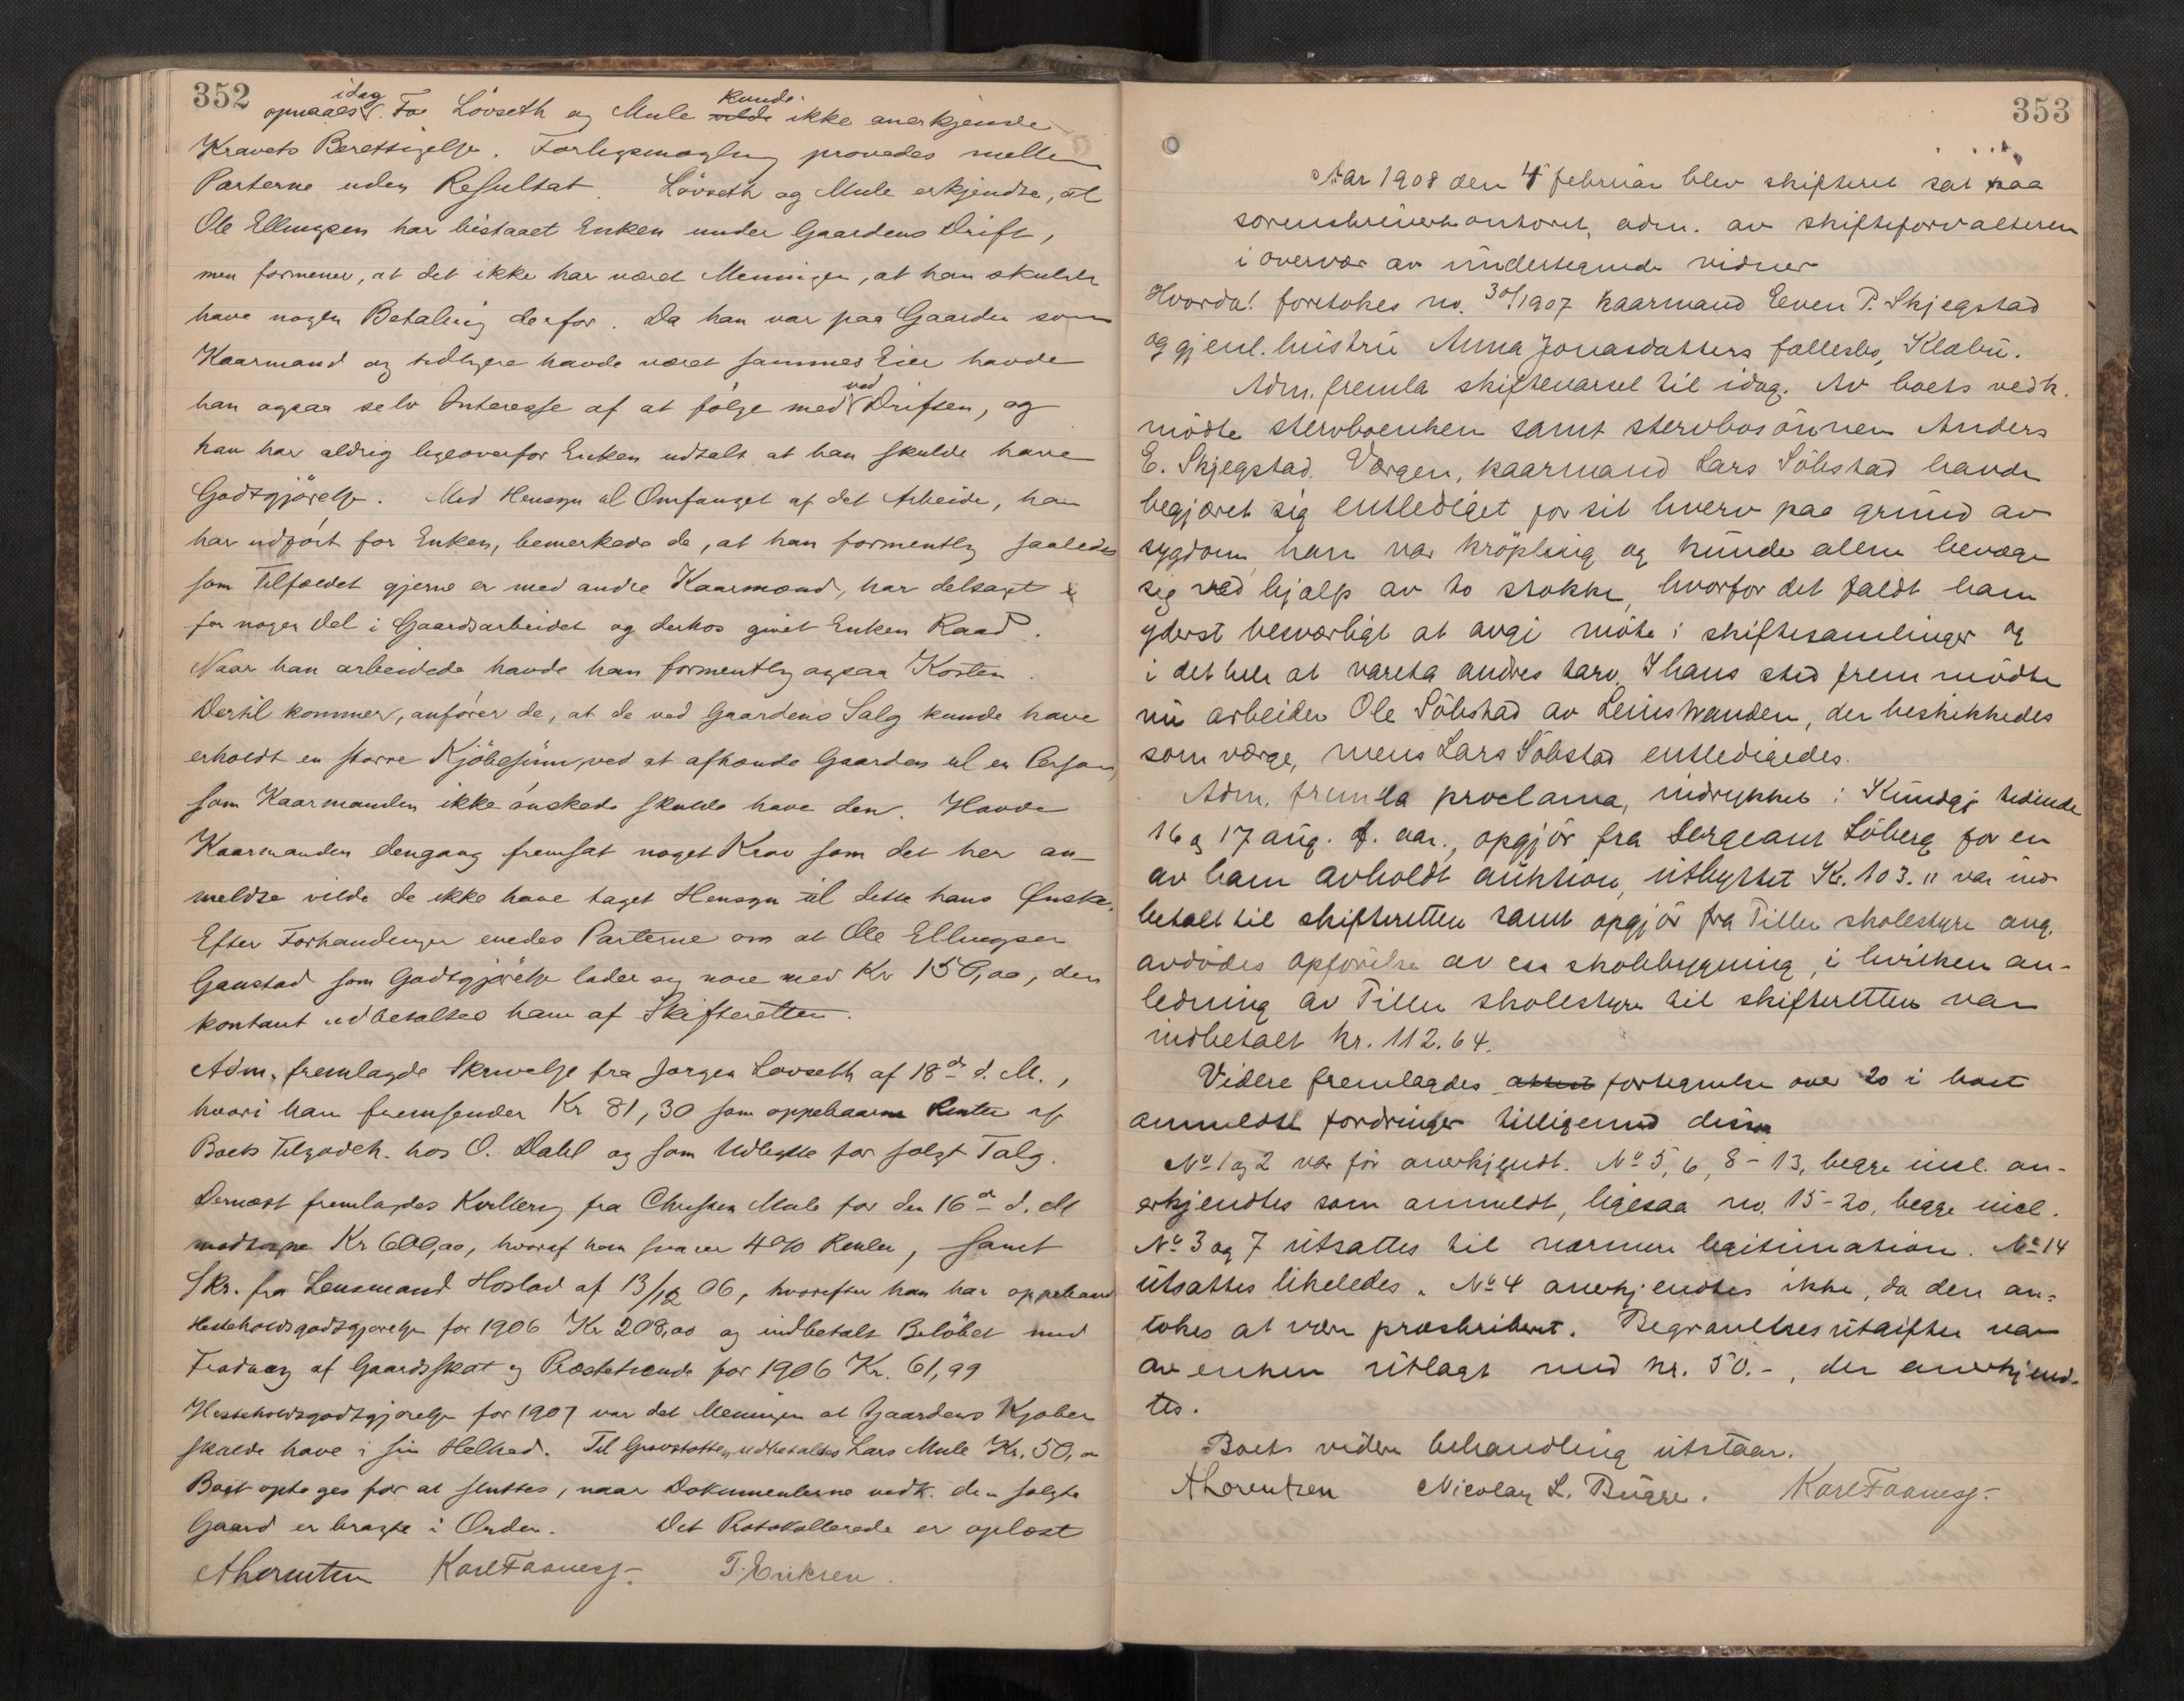 352
opnaaes idag. Lövseth og Mule kunde ikke anerkjende
Kravets Berettigelse. Forligsmægling prøvedes mellem
Parterne uden Resultat. Lövseth og Mule erkjendte, at
Ole Ellingsen har bistaaet Enken under Gaardens Drift,
men formener, at det ikke har været Meningen, at han skulde
have nogen Betaling derfor. Da han var paa Gaarden som
Kaarmand og tidligere havde været sammes Eier havde
han ogsaa selv Interesse af at følge med ved Driften, og
han har aldrig ligeoverfor Enken udtalt at han skulde have
Godtgjörelse. Med Hensyn til Omfanget af det Arbeide, han
har udfört for Enken, bemerkede de, at han formentlig saaledes
som Tilfældet gjerne er med andre Kaarmænd, har deltaget
for nogen Del i Gaardsarbeidet og derhos givet Enken Raad.
Naar han arbeidede havde han formentlig ogsaa Kosten.
Dertil kommer, anfører de, at de ved Gaardens Salg kunde have
erholdt en større Kjöbesum, ved at afhænde Gaarden til en Person,
som Kaarmanden ikke ønskede skulde have den. Havde
Kaarmanden dengang fremsat noget Krav som det her an-
meldte vilde de ikke have taget Hensyn til dette hans Ønske.
Efter Forhandlinger enedes Parterne om at Ole Ellingsen
Ganstad som Godtgjörelse lader sig nøie med Kr 150,00, der
kontant udbetaltes ham af Skifteretten.
Adm. fremlagde Skrivelse fra Jørgen Lovseth af 18de d. M.,
hvori han fremsender Kr 81,30 som oppebaarne Renter af
Boets Tilgodeh. hos O. Dahl og som Udbytte for solgt Talg.
Dernæst fremlagdes Kvittering fra Christen Mule for den 16de d. M
modtagne Kr 600,00, hvoraf han svarer 4% Renter, samt
Skr. fra Lensmand Hoslad af 13/12 06, hvorefter han har oppebaaret
Hesteholdsgodtgjørelse for 1906 Kr 208,00 og indbetalt Beløbet med
Fradrag af Gaardsskat og Præstetiende for 1906 Kr. 61,99
Hesteholdsgodtgjørelse for 1907 var det Meningen at Gaardens Kjøber
skulde have i sin Helhed. Til Gravstøtten udbetaltes Lars Mule Kr. 50,00
Boet optoges for at sluttes, naar Dokumenterne vedk. den solgte
Gaard er bragte i Orden. Det Protokollerede er oplæst
A Lorentzen Karl Faanes T. Eriksen.
353
Aar 1908 den 4 februar blev skifteret sat paa
sorenskriverkontoret, adm. av skifteforvalteren
i overvær av undertegnede vidner
Hvorda! foretokes no. 30/1907 kaarmand Even P. Skjegstad
og gjenl. hustru Anna Jonasdatters fællesbo, Klæbu.
Adm. fremla skiftevarsel til idag. Av boets vedk.
mödte stervboenken samt stervbosönnen Anders
E. Skjegstad. Værgen, kaarmand Lars Söbstad havde
begjæret sig entlediget for sit hverv paa grund av
sygdom, han var kröpling og kunde alene bevæge
sig ved hjælp av to stokke, hvorfor det faldt ham
yderst besværligt at avgi möte i skiftesamlinger og
i det hele at vareta andres tarv. I hans sted fremmödte
nu arbeider Ole Söbstad av Leinstranden, der beskikkedes
som værge, mens Lars Söbstad entledigedes.
Adm. fremla proclama, indrykket i Kundgj tidende
16 og 17 aug. f. aar., opgjör fra Sergeant Löberg for en
av ham avholdt auktion, utbyttet Kr. 103." var ind-
betalt til skifteretten samt opgjör fra Tiller skolestyre ang.
avdödes opförelse av en skolebygning, i hvilken an-
ledning av Tiller skolestyre til skifteretten var
indbetalt kr. 112.64.
Videre fremlagdes fortegnelse over 20 i boet
anmeldte fordringer tilligemed disse
No 1 og 2 var för anerkjendt. No 5, 6, 8-13, begge incl. an-
erkjendtes som anmeldt, ligesaa no. 15-20, begge incl.
No 3 og 7 utsattes til nærmere legitimation. No 14
utsattes likeledes. No 4 anerkjendtes ikke, da den an-
tokes at være præskribert. Begravelsesutgifter var
av enken utlagt med kr. 50.-, der anerkjend-
tes.
Boets videre behandling utstaar.
A Lorentzen Nicolay L. Bugge. Karl Faanes